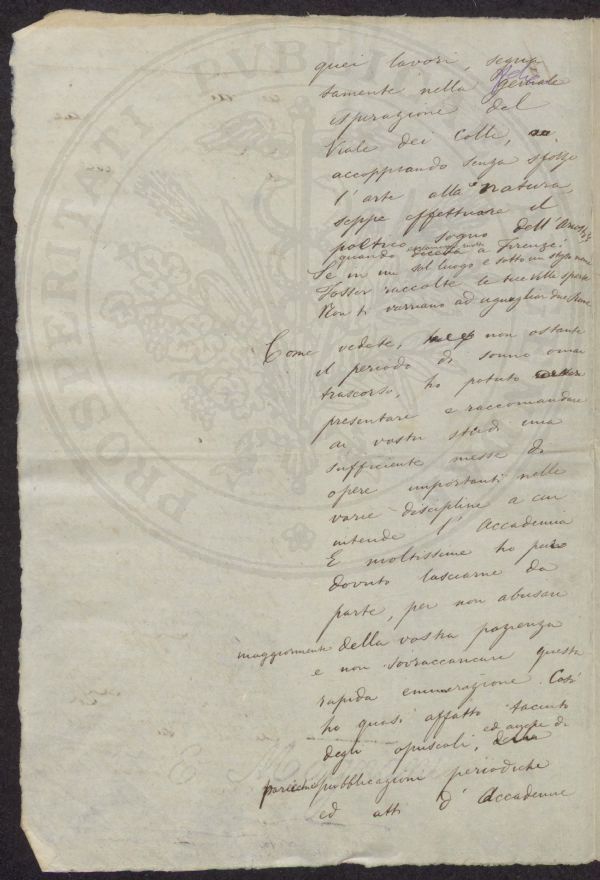 PROSPERITATI PVBLICAE
quei lavori, segna
tamente nella geniale
ispirazione del
Viale dei Colli,
accoppiando senza sforzo
l'arte alla natura,
seppe effettuare il
poetico sogno dell'Ariosto
quando esclamava a Firenze:
Se in un sol luogo e sotto un stesso nome
Fosser raccolte le tue ville sparse
Non ti verriano ad uguagliar due Rome
Come vedete, non ostante
il periodo di sonno omai
trascorso, ho potuto
presentare e raccomandare
ai vostri studi una
sufficiente messe di
opere importanti nelle
varie discipline a cui
intende l'Accademia
E moltissime ho pure
dovuto lasciarne da
parte, per non abusare
maggiormente della vostra pazienza
e non sovraccaricare questa
rapida enumerazione. Così
ho quasi affatto taciuto
degli opuscoli, ed anche di
parecchie pubblicazioni periodiche
ed atti d'Accademie